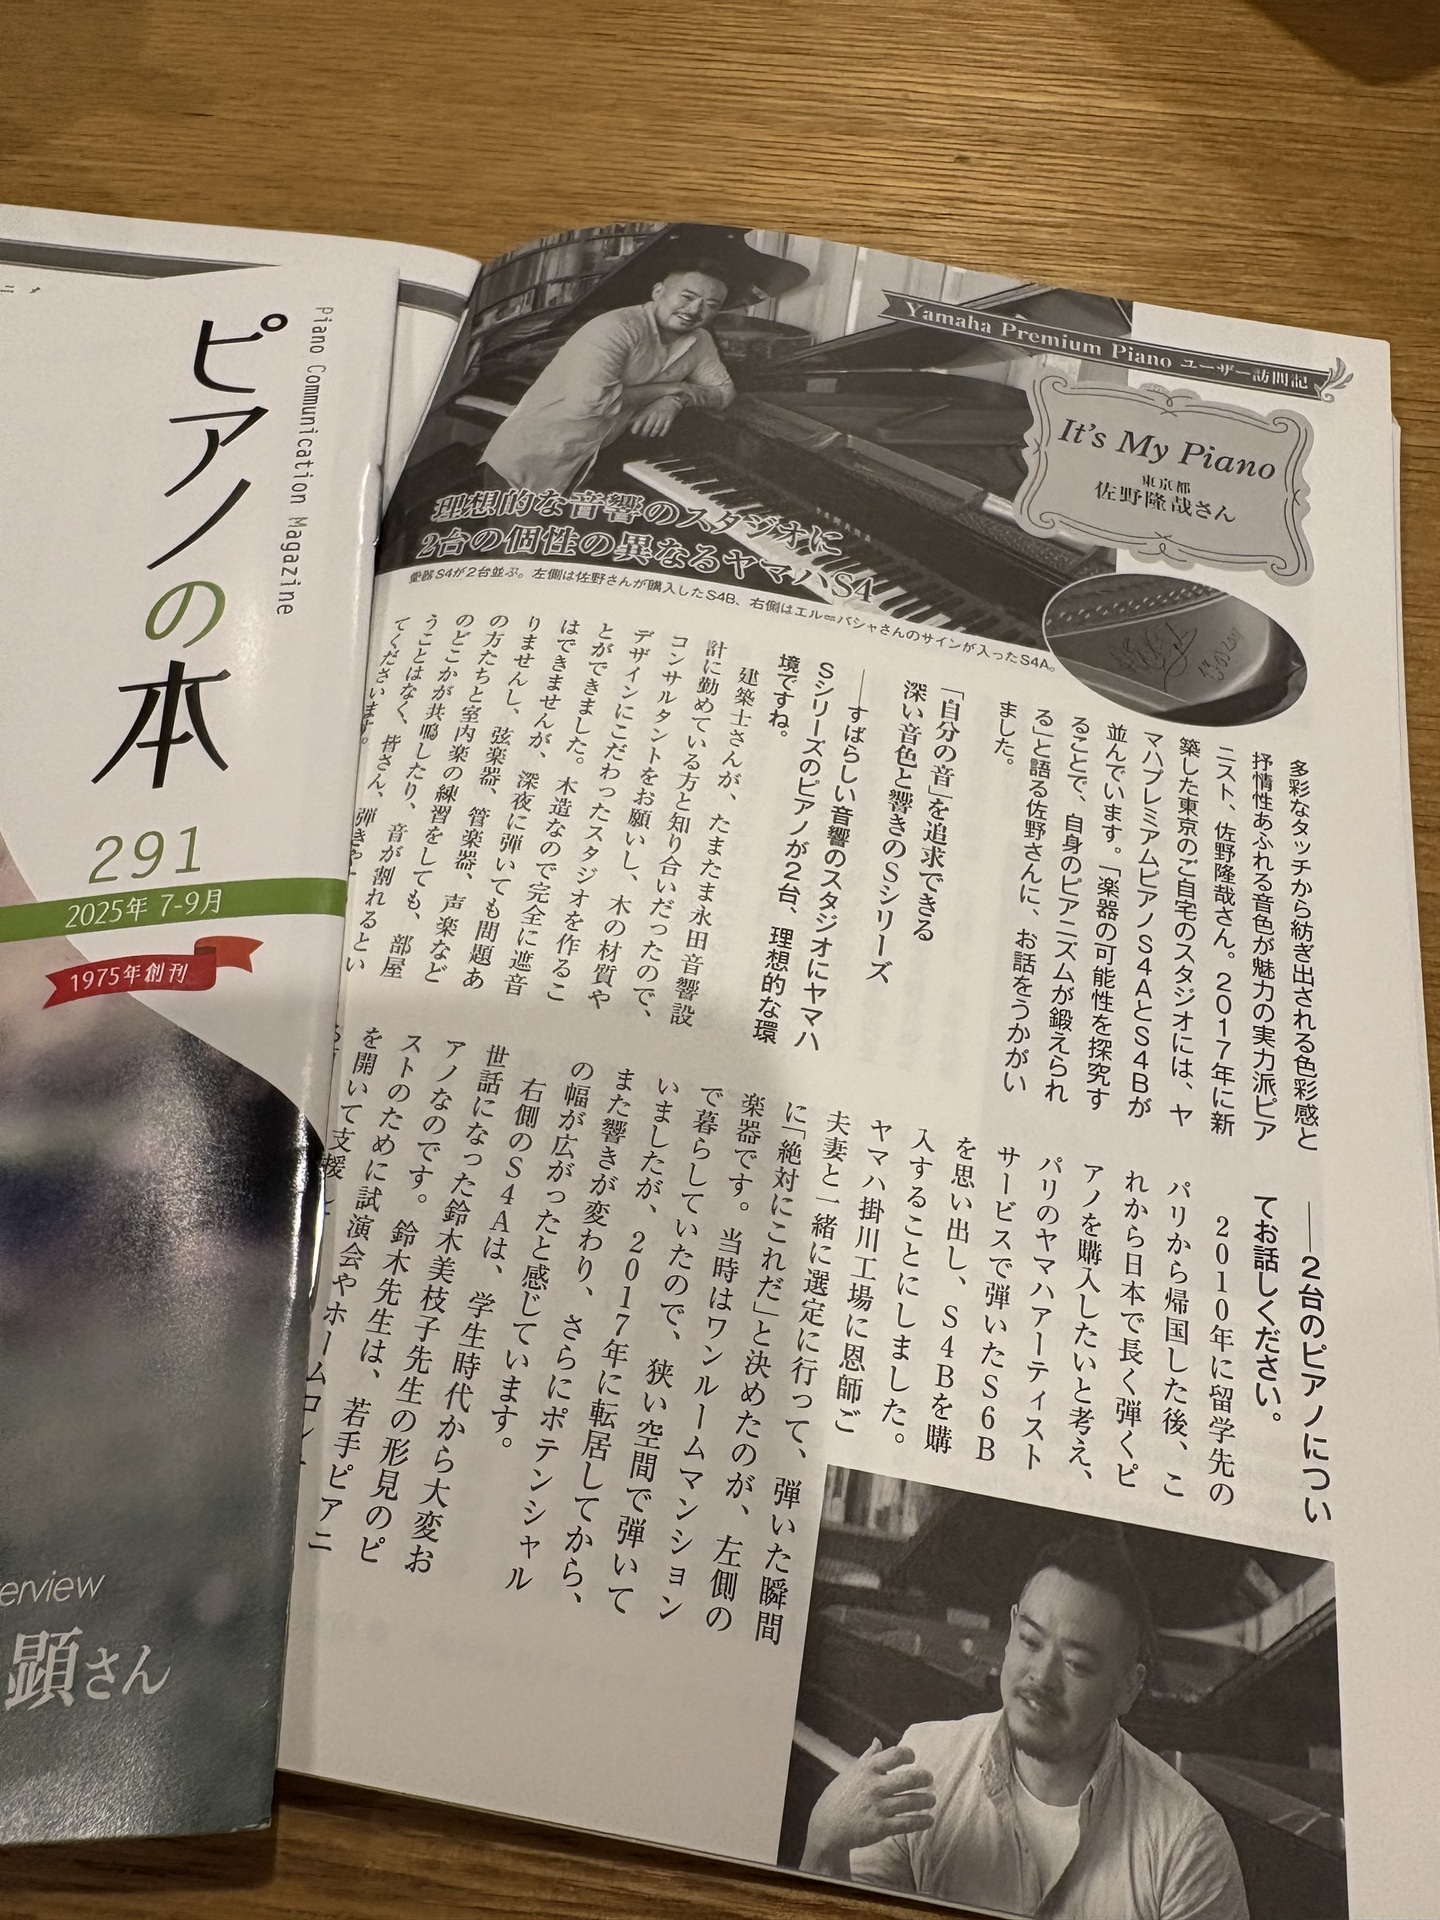 ピアノの本
Piano Communication Magazine
291
2025年 7-9月
1975年創刊
erview
顕さん
Yamaha Premium Piano ユーザー訪問記
It's My Piano
東京都
佐野隆哉さん
理想的な音響のスタジオに
2台の個性の異なるヤマハS4
愛器S4が2台並ぶ。左側は佐野さんが購入したS4B、右側はエル＝バシャさんのサインが入ったS4A。
多彩なタッチから紡ぎ出される色彩感と
抒情性あふれる音色が魅力の実力派ピア
ニスト、佐野隆哉さん。2017年に新
築した東京のご自宅のスタジオには、ヤ
マハプレミアムピアノS4AとS4Bが
並んでいます。「楽器の可能性を探究す
ることで、自身のピアニズムが鍛えられ
る」と語る佐野さんに、お話をうかがい
ました。
「自分の音」を追求できる
深い音色と響きのSシリーズ
──すばらしい音響のスタジオにヤマハ
Sシリーズのピアノが2台、理想的な環
境ですね。
建築士さんが、たまたま永田音響設
計に勤めている方と知り合いだったので、
コンサルタントをお願いし、木の材質や
デザインにこだわったスタジオを作るこ
とができました。木造なので完全に遮音
はできませんが、深夜に弾いても問題あ
りませんし、弦楽器、管楽器、声楽など
の方たちと室内楽の練習をしても、部屋
のどこかが共鳴したり、音が割れるとい
うことはなく、皆さん、弾きや
てくださいます。
──2台のピアノについ
てお話しください。
2010年に留学先の
パリから帰国した後、こ
れから日本で長く弾くピ
アノを購入したいと考え、
パリのヤマハアーティスト
サービスで弾いたS6B
を思い出し、S4Bを購
入することにしました。
ヤマハ掛川工場に恩師ご
夫妻と一緒に選定に行って、弾いた瞬間
に「絶対にこれだ」と決めたのが、左側の
楽器です。当時はワンルームマンション
で暮らしていたので、狭い空間で弾いて
いましたが、2017年に転居してから、
また響きが変わり、さらにポテンシャル
の幅が広がったと感じています。
右側のS4Aは、学生時代から大変お
世話になった鈴木美枝子先生の形見のピ
アノなのです。鈴木先生は、若手ピアニ
ストのために試演会やホームコン
を開いて支援し